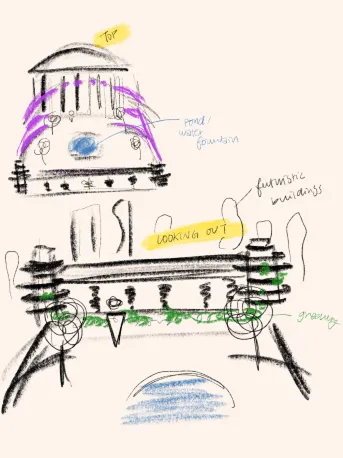 TOP
POND/
water
fountain
futuristic
buildings
LOOKING OUT
greenery